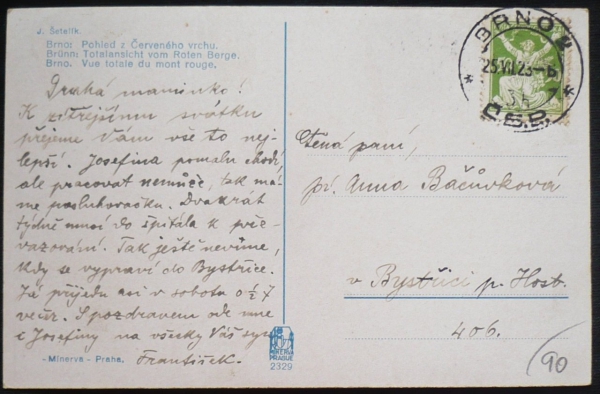 J. Šetelík.
Brno: Pohled z Červeného vrchu.
Brünn: Totalansicht vom Roten Berge.
Brno. Vue totale du mont rouge.
Drahá maminko!
K zítřejšímu svátku
přejeme Vám vše to nej-
lepší. Josefina pomalu chodí,
ale pracovat nemůže, tak má-
me posluhovačku. Dvakrát
týdně musí do špitála k pře-
vazování. Tak ještě nevíme,
kdy se vypraví do Bystřice.
Já přijedu asi v sobotu o ½ 7
večír. S pozdravem ode mne
i Josefiny na všecky Váš syn
František.
-Minerva - Praha.
MINERVA
PRAGUE
2329
BRNO 2
25.VII.23-6
Č.S.P.
Ctěná paní,
pí. Anna Báčůvková
v Bystřici p. Host.
406.
90